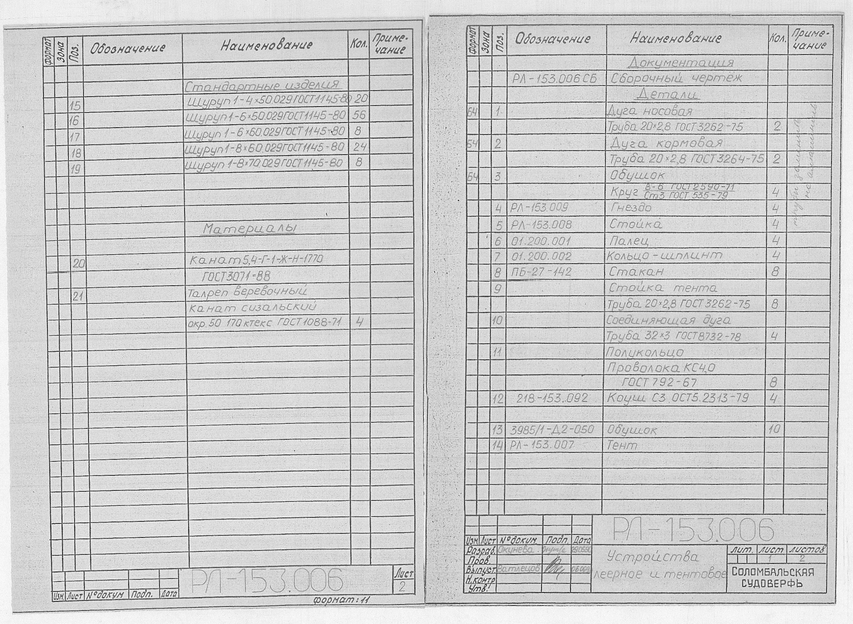 Формат Зона Поз. Обозначение Наименование Кол. Примечание
Стандартные изделия
15 Шуруп 1-4×50.029 ГОСТ 1145-80 20
16 Шуруп 1-6×50.029 ГОСТ 1145-80 56
17 Шуруп 1-6×60.029 ГОСТ 1145-80 8
18 Шуруп 1-8×60.029 ГОСТ 1145-80 24
19 Шуруп 1-8×70.029 ГОСТ 1145-80 8
Материалы
20 Канат 5,4-Г-1-Ж-Н-1770
ГОСТ 3071-88
21 Талреп веревочный
Канат сизальский
окр.50 170 ктекс ГОСТ 1088-71 4
Изм Лист № докум Подп. Дата
РЛ-153.006
Лист
2
Формат: 11
Формат Зона Поз. Обозначение Наименование Кол. Примечание
Документация
РЛ-153.006 СБ Сборочный чертеж
Детали
БЧ 1 Дуга носовая
Труба 20×2,8 ГОСТ 3262-75 2
БЧ 2 Дуга кормовая
Труба 20×2,8 ГОСТ 3264-75 2
БЧ 3 Обушок
Круг В-6 ГОСТ 2590-71
Ст3 ГОСТ 535-79 4
4 РЛ-153.009 Гнездо 4
5 РЛ-153.008 Стойка 4
6 01.200.001 Палец 4
7 01.200.002 Кольцо-шплинт 4
8 ПБ-27-142 Стакан 8
9 Стойка тента
Труба 20×2,8 ГОСТ 3262-75 8
10 Соединяющая дуга
Труба 32×3 ГОСТ 8732-78 4
11 Полукольцо
Проволока КС4,0
ГОСТ 792-67 8
12 218-153.092 Коуш С3 ОСТ5.2313-79 4
13 3985/1-Д2-050 Обушок 10
14 РЛ-153.007 Тент
РЛ-153.006
Изм Лист № докум. Подп. Дата
Разраб. Окунева
Пров.
Выпуст.
Н.контр.
Утв.
Устройства
леерное и тентовое
Лит. Лист Листов
2
Соломбальская
судоверфь